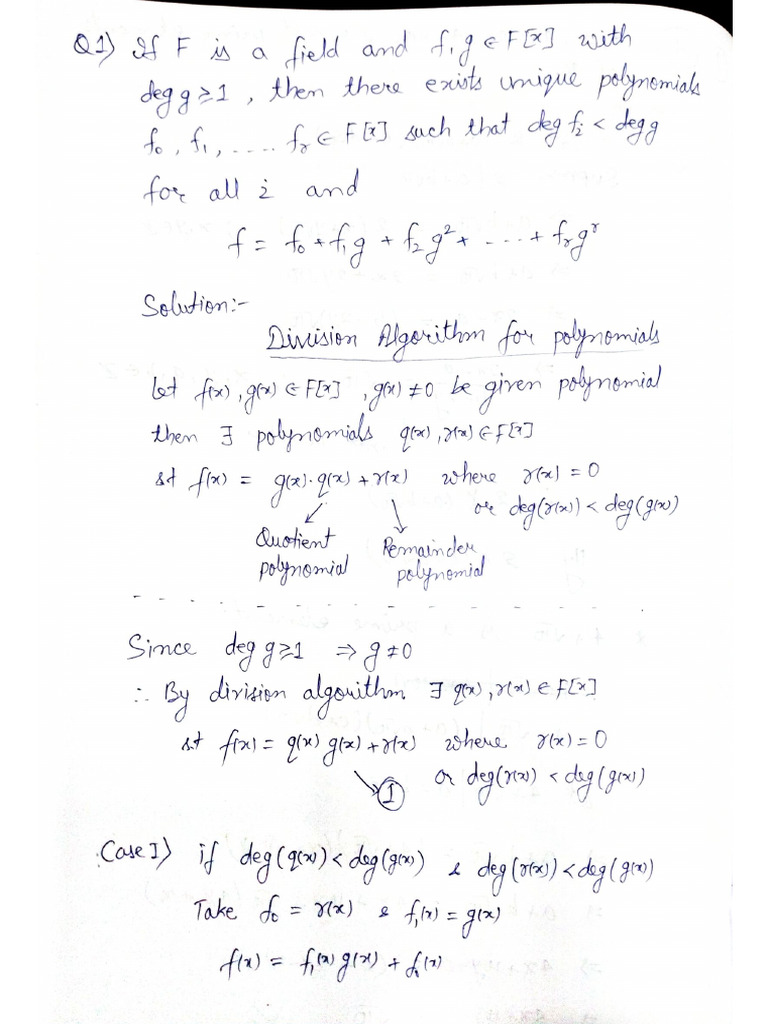 Q1) If F is a field and f, g ∈ F[x] with
deg g ≥ 1, then there exists unique polynomials
f₀, f₁, .... fᵣ ∈ F[x] such that deg fᵢ < deg g
for all i and
f = f₀ + f₁g + f₂g² + ... + fᵣgʳ
Solution:-
Division Algorithm for polynomials
Let f(x), g(x) ∈ F[x], g(x) ≠ 0 be given polynomial
then ∃ polynomials q(x), r(x) ∈ F[x]
st f(x) = g(x)·q(x) + r(x) where r(x) = 0
or deg(r(x)) < deg(g(x))
Quotient polynomial
Remainder polynomial
Since deg g ≥ 1 ⇒ g ≠ 0
∴ By division algorithm ∃ q(x), r(x) ∈ F[x]
st f(x) = q(x) g(x) + r(x) where r(x) = 0
or deg(r(x)) < deg(g(x))
①
Case I) if deg(q(x)) < deg(g(x)) & deg(r(x)) < deg(g(x))
Take f₀ = r(x) & f₁(x) = g(x)
f(x) = f₁(x) g(x) + f₀(x)